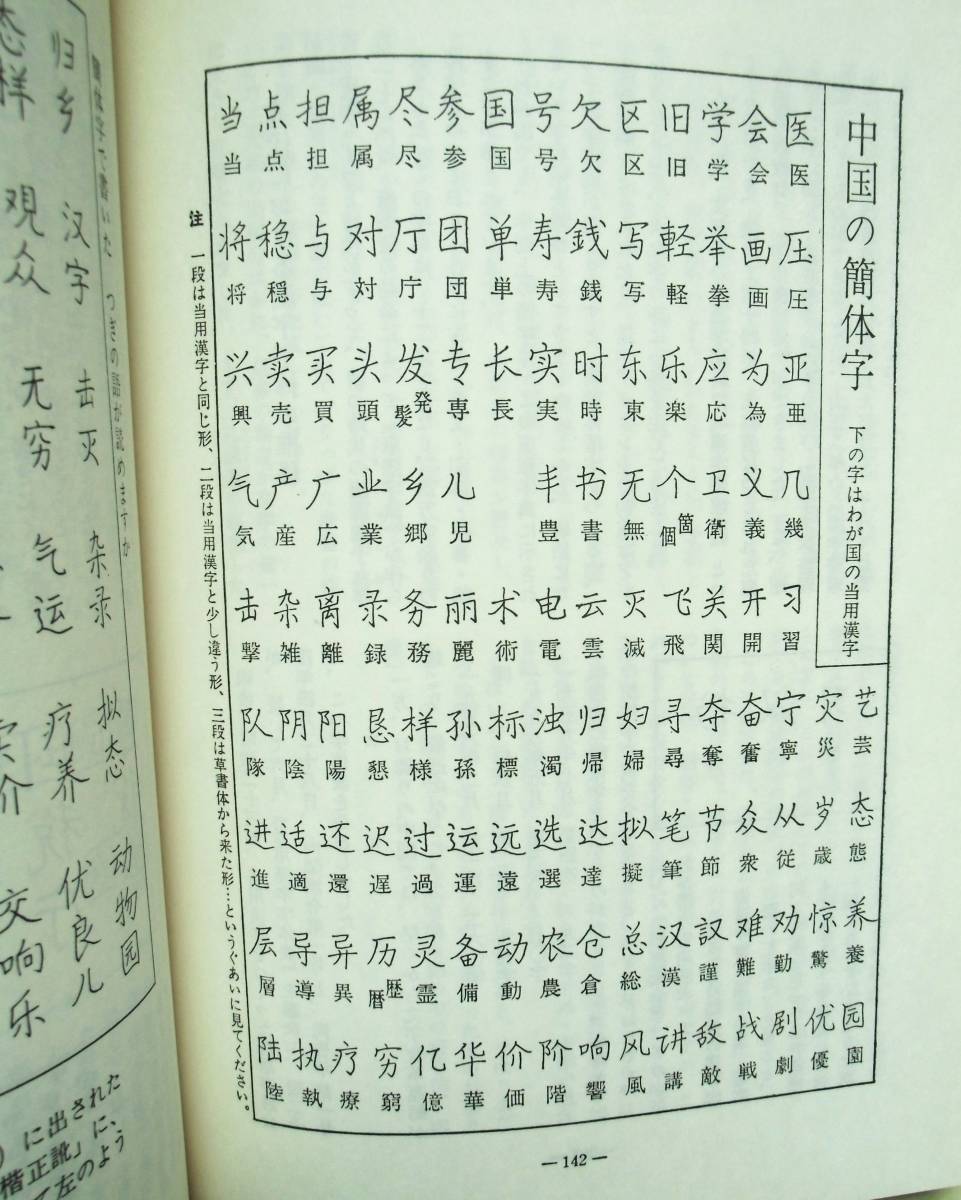 中国の簡体字
下の字はわが国の当用漢字
医会学旧区欠号国参尽属担点当
医会学旧区欠号国参尽属担点当
压画举軽写銭寿单团厅对与稳将
圧画挙軽写銭寿単団庁対与穏将
亚为应乐东时实长专发头买卖兴
亜為応楽東時実長専発髪頭買売興
几义卫个无书丰儿乡业广产气
幾義衛箇個無書豊児郷業広産気
习开关飞灭云电术丽务录离杂击
習開関飛滅雲電術麗務録離雑撃
艺灾宁奋夺寻妇归浊标孙样恳阳阴队
芸災寧奮奪尋婦帰濁標孫様懇陽陰隊
态岁从众节笔拟达选远运过迟还适进
態歳従衆節筆擬達選遠運過遅還適進
养惊劝难汉总仓农动备灵历异导层
養驚勤難謹漢総倉農動備霊歴暦異導層
园优剧战敌讲风响阶价华亿穷疗执陆
園優劇戦敵講風響階価華億窮療執陸
注 一段は当用漢字と同じ形、二段は当用漢字と少し違う形、三段は草書体から来た形…というぐあいに見てください。
—142—
簡体字で書いた つぎの語が読めますか
归乡 汉字 击灭 杂录 拟态 动物园
态样 观众 无穷 气运 疗养 优良儿
介 交响乐
に出された
楷正訛」に、
て左のよう